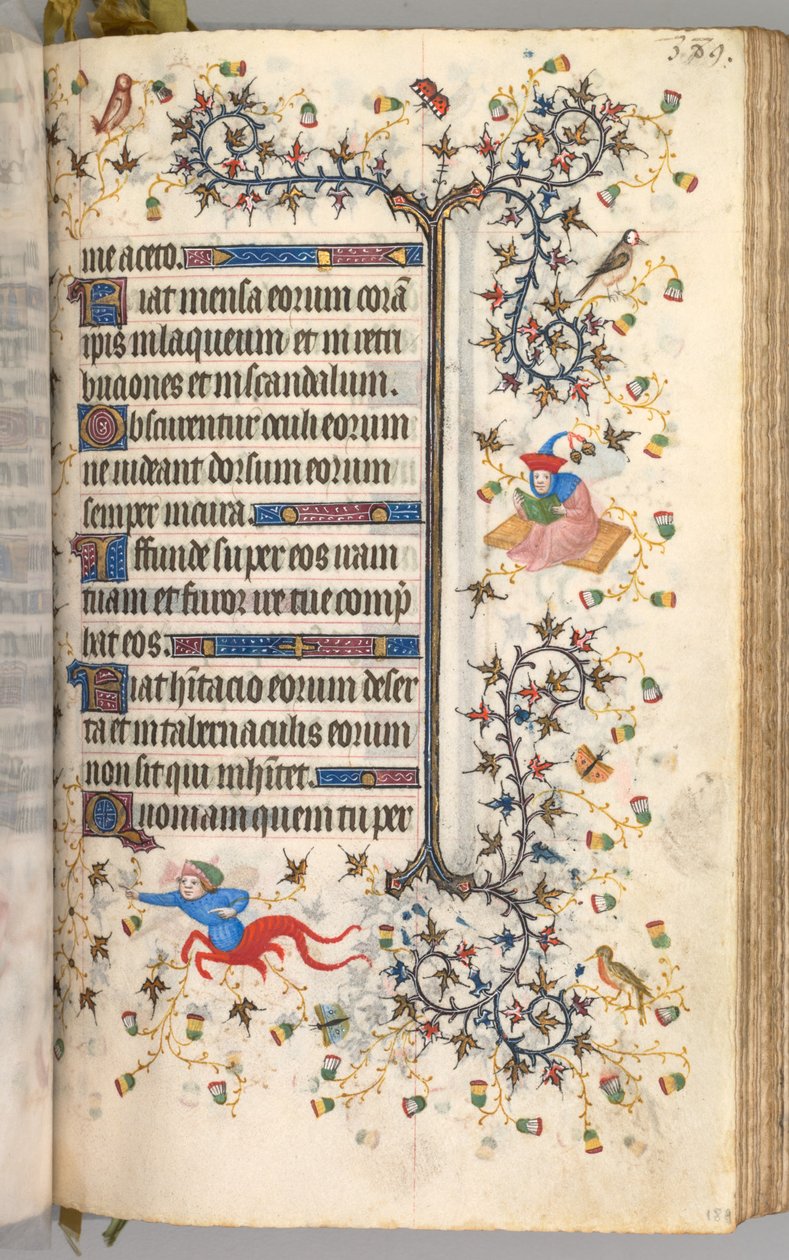 389.
me aceto.
Fiat mensa eorum corā
ipis in laqueum et in retri
buciones et in scandalum.
Obscurentur oculi eorum
ne uideant dorsum eorum
semper incura.
Effunde super eos iram
tuam et furor ire tue comp̄
hat eos.
Fiat hītacio eorum deser
ta et in tabernaculis eorum
non sit qui inhītet.
Quoniam quem tu per